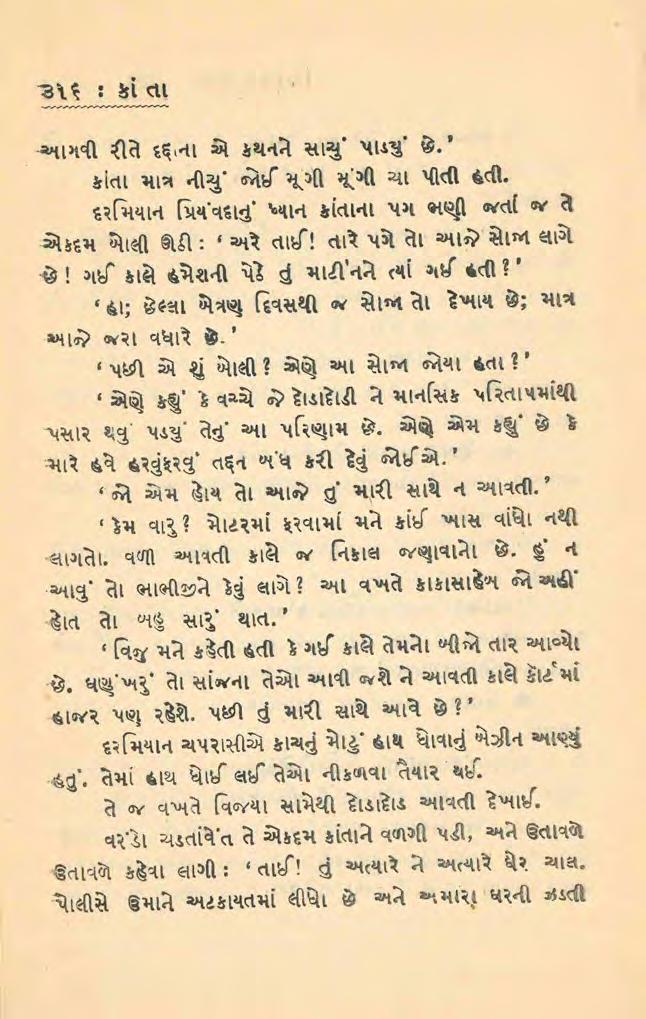 ૩૧૬ : કાંતા
આગવી રીતે દદ્દાના એ કથનને સાચું પાડયું છે.’
કાંતા માત્ર નીચું જોઈ મૂગી મૂંગી ચા પીતી હતી.
દરમિયાન પ્રિયંવદાનું ધ્યાન કાંતાના પગ ભણી જતાં જ તે
એકદમ બોલી ઊઠી : ‘ અરે તાઈ! તારે પગે તો આજે સોજા લાગે
છે! ગઈ કાલે હમેશની પેઠે તું માટીર્નને ત્યાં ગઈ હતી?’
‘ હા; છેલ્લા બેત્રણ દિવસથી જ સોજા તો દેખાય છે; માત્ર
આજે જરા વધારે છે.’
‘ પછી એ શું બોલી? એણે આ સોજા જોયા હતા?’
‘ એણે કહ્યું કે વચ્ચે જે દોડાદોડી ને માનસિક પરિતાપમાંથી
પસાર થવું પડયું તેનું આ પરિણામ છે. એણે એમ કહ્યું છે કે
મારે હવે હરવુંફરવું તદ્દન બંધ કરી દેવું જોઈએ.’
‘ જો એમ હોય તો આજે તું મારી સાથે ન આવતી.’
‘ કેમ વારુ? મોટરમાં ફરવામાં મને કાંઈ ખાસ વાંધો નથી
લાગતો. વળી આવતી કાલે જ નિકાલ જણાવાનો છે. હું ન
આવું તો ભાભીજીને કેવું લાગે? આ વખતે કાકાસાહેબ જો અહીં
હોત તો બહુ સારું થાત.’
‘ વિજુ મને કહેતી હતી કે ગઈ કાલે તેમનો બીજો તાર આવ્યો
છે. ઘણુંખરું તો સાંજના તેઓ આવી જશે ને આવતી કાલે કોર્ટમાં
હાજર પણ રહેશે. પછી તું મારી સાથે આવે છે?’
દરમિયાન ચપરાસીએ કાચનું મોટું હાથ ધોવાનું બેઝીન આણ્યું
હતું. તેમાં હાથ ધોઈ લઈ તેઓ નીકળવા તૈયાર થઈ.
તે જ વખતે વિજયા સામેથી દોડાદોડ આવતી દેખાઈ.
વરંડો ચડતાંવેંત તે એકદમ કાંતાને વળગી પડી, અને ઉતાવળે
ઉતાવળે કહેવા લાગી : ‘ તાઈ! તું અત્યારે ને અત્યારે ઘેર ચાલ.
પોલીસે ઉમાને અટકાયતમાં લીધો છે અને અમારા ઘરની ઝડતી